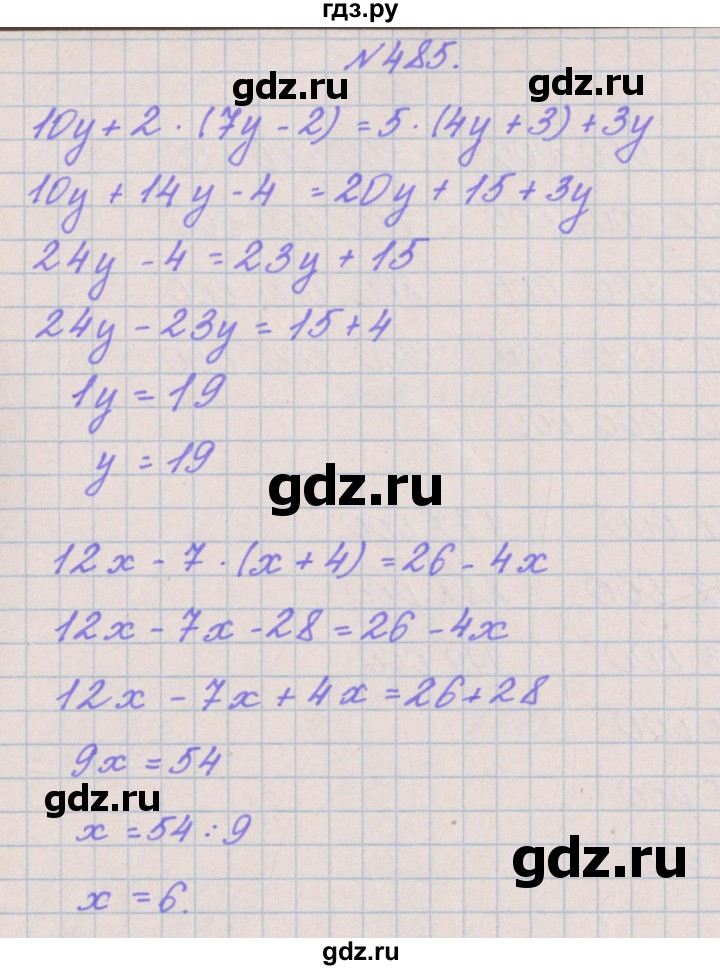 гдз.ру
№485.
gdz.ru gdz.ru
10y + 2 · (7y - 2) = 5 · (4y + 3) + 3y
10y + 14y - 4 = 20y + 15 + 3y
24y - 4 = 23y + 15
24y - 23y = 15 + 4
1y = 19
y = 19
gdz.ru
12x - 7 · (x + 4) = 26 - 4x
12x - 7x - 28 = 26 - 4x
12x - 7x + 4x = 26 + 28
9x = 54
gdz.ru
x = 54 : 9
gdz.ru
x = 6.
gdz.ru